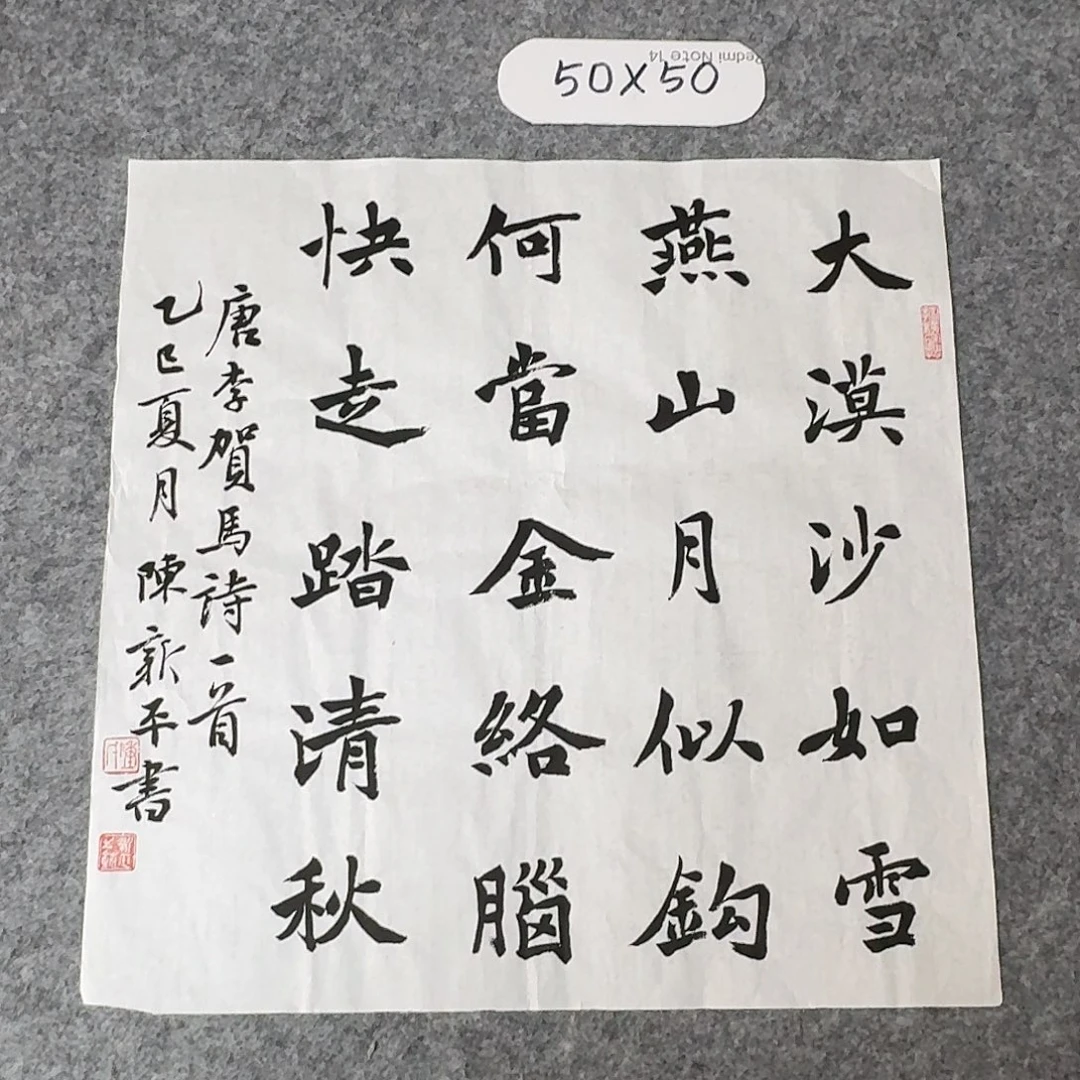 Redmi Note 14
50X50
大漠沙如雪
燕山月似鈎
何當金絡腦
快走踏清秋
唐李賀馬詩一首
乙巳夏月陳新平書